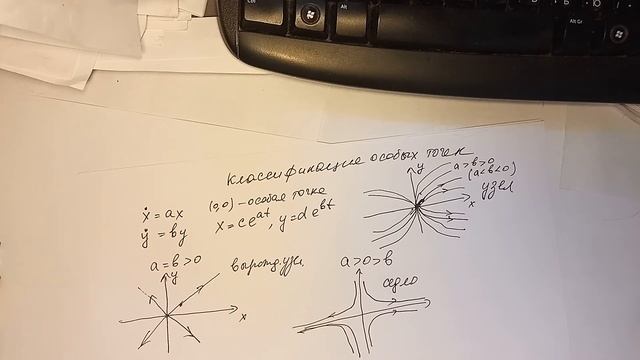 Ctrl
Alt
Alt Gr
Классификация особых точек
ẋ = ax
ẏ = by
(0,0) – особая точка
x = ce^{at}, y = de^{bt}
y
a > b > 0
(a < b < 0)
узел
x
a = b > 0
y
вырожд. узел
x
a > 0 > b
седло